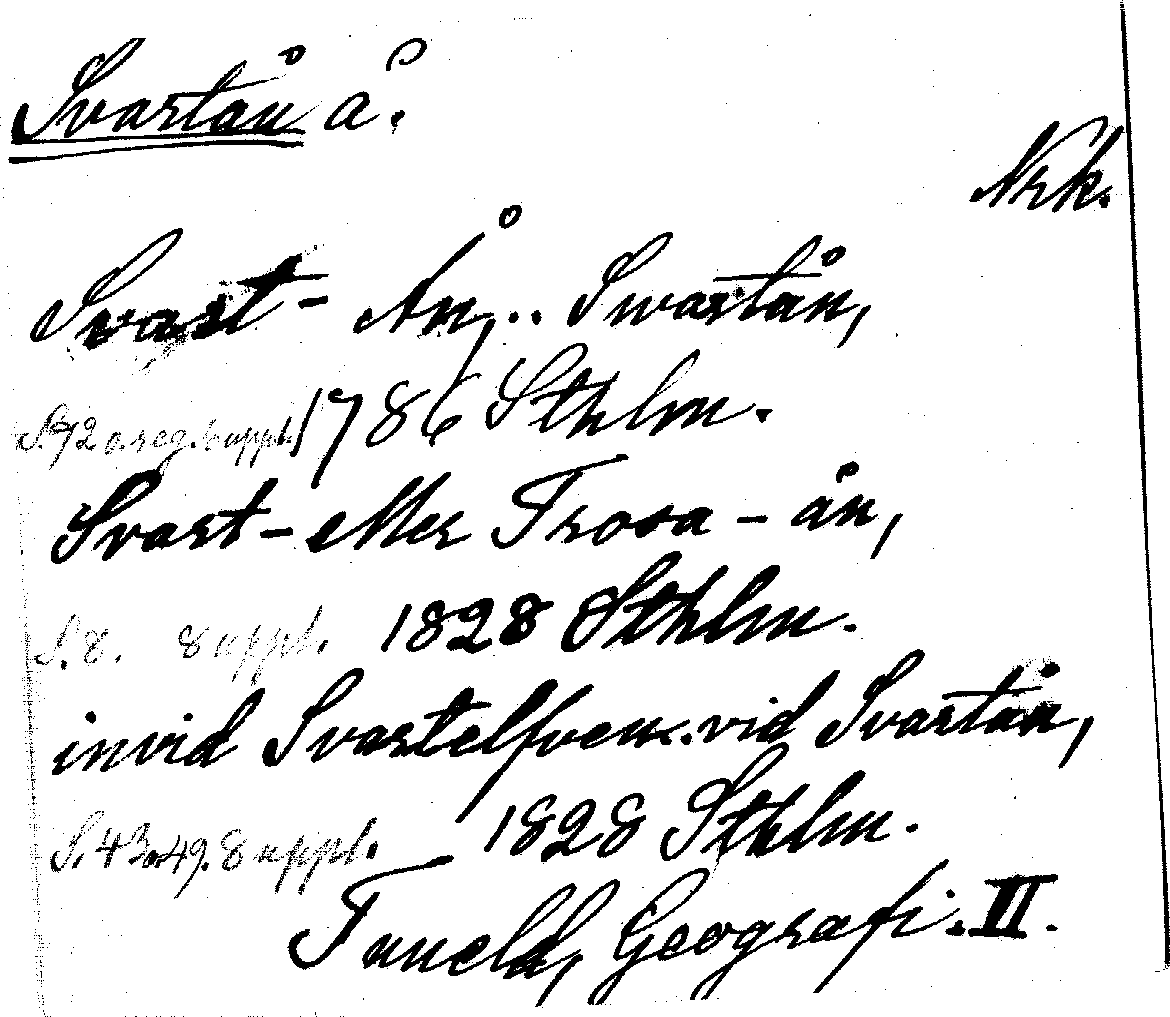 Svartån å.
Nrk.
Svart- Ån, .. Swartån,
S. 72 o. reg. 6 uppl. 1786 Sthlm.
Svart- eller Trosa-ån,
S. 8. 8 uppl. 1828 Sthlm.
invid Svartelfven.. vid Svartån,
S. 43. 49. 8 uppl. 1828 Sthlm.
Tuneld, Geografi. II.